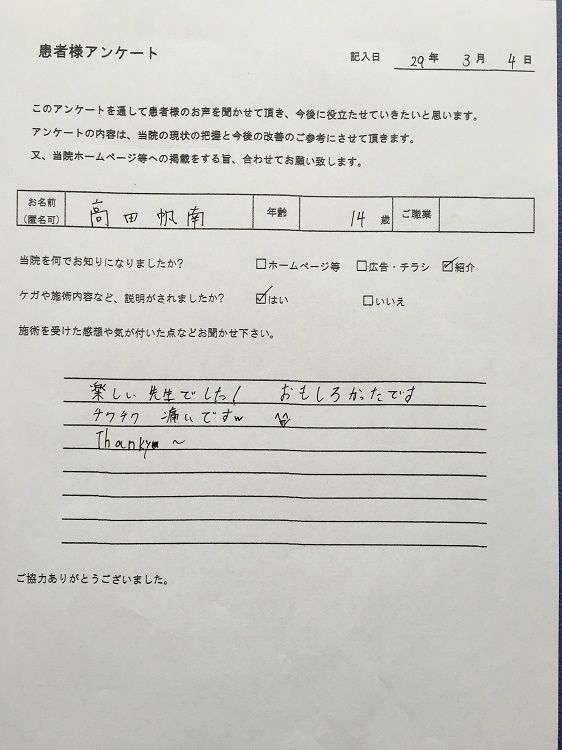 患者様アンケート
記入日 29年 3月 4日
このアンケートを通して患者様のお声を聞かせて頂き、今後に役立たせていきたいと思います。
アンケートの内容は、当院の現状の把握と今後の改善のご参考にさせて頂きます。
又、当院ホームページ等への掲載をする旨、合わせてお願い致します。
お名前 高田帆南 年齢 14歳 ご職業
(匿名可)
当院を何でお知りになりましたか? □ホームページ等 □広告・チラシ ☑紹介
ケガや施術内容など、説明がされましたか? ☑はい □いいえ
施術を受けた感想や気が付いた点などお聞かせ下さい。
楽しい先生でした! おもしろかったです
チクチク 痛いですw ^^
Thanky ~
ご協力ありがとうございました。